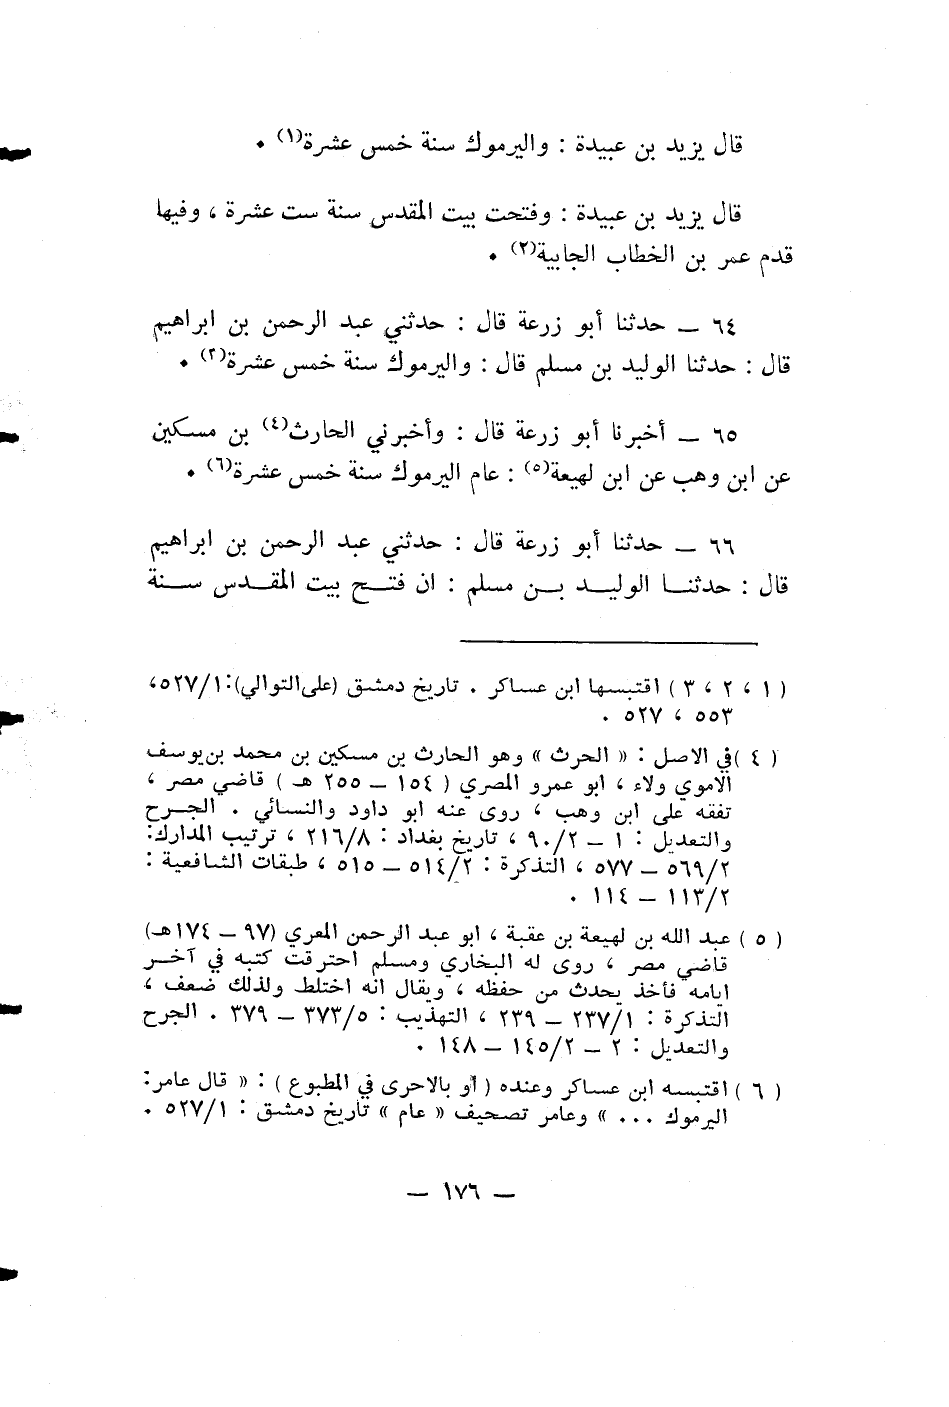 قال يزيد بن عبيدة : واليرموك سنة خمس عشرة(١) .
قال يزيد بن عبيدة : وفتحت بيت المقدس سنة ست عشرة ، وفيها
قدم عمر بن الخطاب الجابية(٢) .
٦٤ — حدثنا أبو زرعة قال : حدثني عبد الرحمن بن ابراهيم
قال : حدثنا الوليد بن مسلم قال : واليرموك سنة خمس عشرة(٣) .
٦٥ — أخبرنا أبو زرعة قال : وأخبرني الحارث(٤) بن مسكين
عن ابن وهب عن ابن لهيعة(٥) : عام اليرموك سنة خمس عشرة(٦) .
٦٦ — حدثنا أبو زرعة قال : حدثني عبد الرحمن بن ابراهيم
قال : حدثنا الوليد بن مسلم : ان فتح بيت المقدس سنة
( ١ ، ٢ ، ٣ ) اقتبسها ابن عساكر . تاريخ دمشق (على التوالي):٥٢٧/١،
٥٥٣ ، ٥٢٧ .
( ٤ )في الاصل : « الحرث » وهو الحارث بن مسكين بن محمد بن يوسف
الاموي ولاء ، ابو عمرو المصري ( ١٥٤ — ٢٥٥ هـ ) قاضي مصر ،
تفقه على ابن وهب ، روى عنه ابو داود والنسائي . الجرح
والتعديل : ١ — ٩٠/٢ ، تاريخ بغداد : ٢١٦/٨ ، ترتيب المدارك:
٥٦٩/٢ — ٥٧٧ ، التذكرة : ٥١٤/٢ — ٥١٥ ، طبقات الشافعية :
١١٣/٢ — ١١٤ .
( ٥ ) عبد الله بن لهيعة بن عقبة ، ابو عبد الرحمن المعري (٩٧ — ١٧٤هـ)
قاضي مصر ، روى له البخاري ومسلم احترقت كتبه في آخر
ايامه فأخذ يحدث من حفظه ، ويقال انه اختلط ولذلك ضعف ،
التذكرة : ٢٣٧/١ — ٢٣٩ ، التهذيب : ٣٧٣/٥ — ٣٧٩ . الجرح
والتعديل : ٢ — ١٤٥/٢ — ١٤٨ .
( ٦ ) اقتبسه ابن عساكر وعنده ( أو بالاحرى في المطبوع ) : « قال عامر:
اليرموك ... » وعامر تصحيف « عام » تاريخ دمشق : ٥٢٧/١ .
— ١٧٦ —